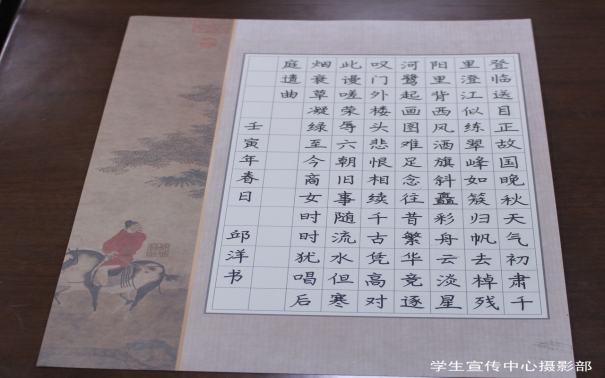 登临送目正故国晚秋天气初肃千
里澄江似练翠峰如簇归帆去棹残
阳里背西风酒旗斜矗彩舟云淡星
河鹭起画图难足念往昔繁华竞逐
叹门外楼头悲恨相续千古凭高对
此谩嗟荣辱六朝旧事随流水但寒
烟衰草凝绿至今商女时时犹唱后
庭遗曲
壬寅年春日 邱洋书
学生宣传中心摄影部